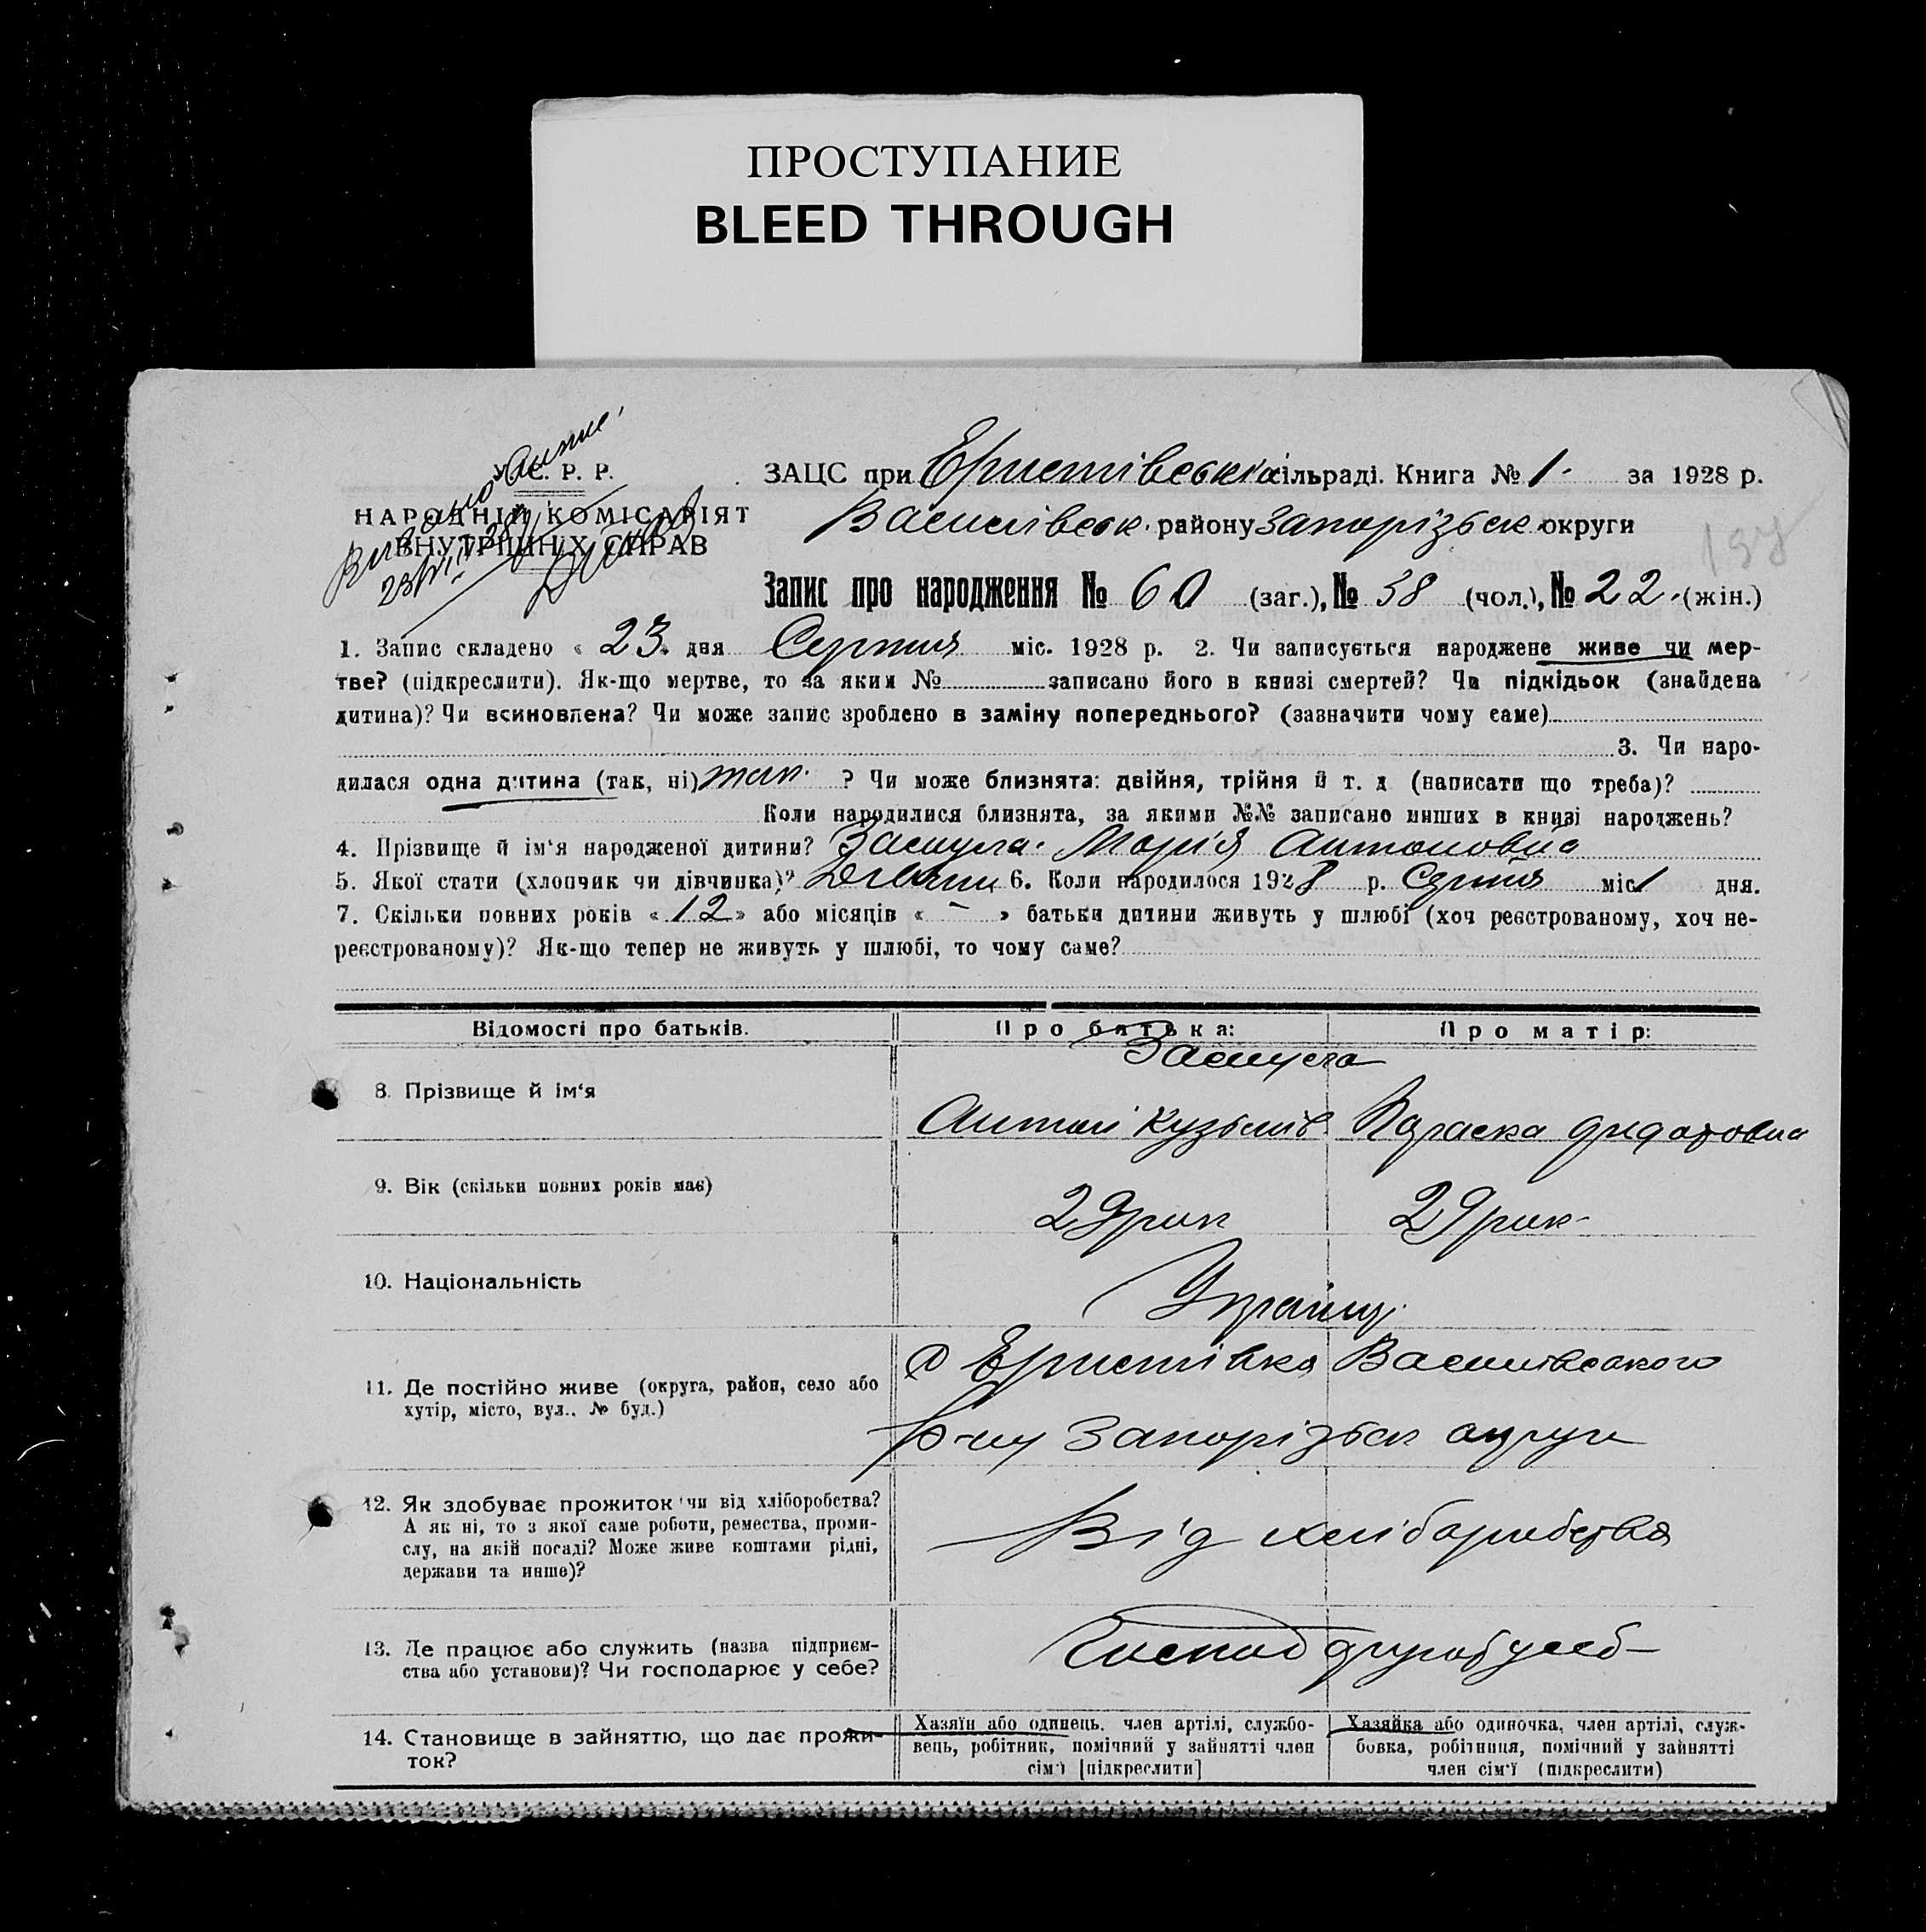 ПРОСТУПАНИЕ
BLEED THROUGH
У. С. Р. Р.
НАРОДНІЙ КОМІСАРІЯТ
ВНУТРІШНІХ СПРАВ
ЗАЦС при Еристівській сільраді. Книга № 1. за 1928 р.
Василівськ. району Запорізьк округи
197
Запис про народження № 60 (заг.), № 38 (чол.), № 22. (жін.)
1. Запис складено « 23 » дня Серпня міс. 1928 р. 2. Чи записується народжене живе чи мер-
тве? (підкреслити). Як-що мертве, то за яким № записано його в книзі смертей? Чи підкідьок (знайдена
дитина)? Чи всиновлена? Чи може запис зроблено в заміну попереднього? (зазначити чому саме)
3. Чи наро-
дилася одна дитина (так, ні) так. ? Чи може близнята: двійня, трійня й т. д (написати що треба)?
Коли народилися близнята, за якими №№ записано инших в книзі народжень?
4. Прізвище й ім‘я народженої дитини? Засуха. Марія Антоновна
5. Якої стати (хлопчик чи дівчинка)? 6. Коли народилося 1928 р. Серпня міс 1 дня.
7. Скільки повних років « 12 » або місяців « - » батьки дитини живуть у шлюбі (хоч реєстрованому, хоч не-
реєстрованому)? Як-що тепер не живуть у шлюбі, то чому саме?
Відомості про батьків. Про батька: Про матір:
8. Прізвище й ім‘я
Антон Кузьмів. Параска
9. Вік (скільки повних років має)
29 рик 29 рик-
10. Національність
Українці.
11. Де постійно живе (округа, район, село або
хутір, місто, вул., № буд.)
с Еристівка Василівського
р-ну Запорізьк округи
12. Як здобуває прожиток чи від хліборобства?
А як ні, то з якої саме роботи, ремества, проми-
слу, на якій посаді? Може живе коштами рідні,
держави та инше)?
Від хліборобства
13. Де працює або служить (назва підприєм-
ства або установи)? Чи господарює у себе?
14. Становище в зайняттю, що дає прожи-
ток?
Хазяїн або одинець, член артілі, службо-
вець, робітник, помічний у зайнятті член
сім‘ї [підкреслити]
Хазяйка або одиночка, член артілі, служ-
бовка, робітниця, помічний у зайнятті
член сім‘ї (підкреслити)